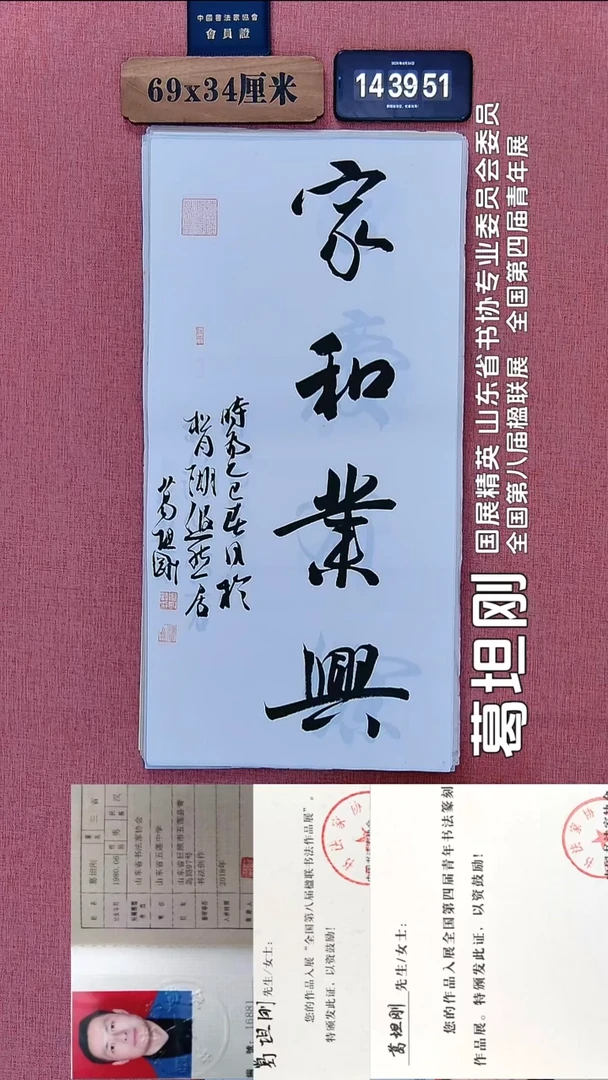 中國書法家協會
會員證
69x34厘米
14 39 51
家和業興
時風乙巳春日於
松月湖設然居
葛坦剛
葛坦刚
国展精英 山东省书协专业委员会委员
全国第八届楹联展 全国第四届青年展
葛坦刚
1980.06
山东省书法家协会
山东省五莲中学
书法创作
2018年
16881
葛坦刚 先生/女士：
您的作品入展“全国第八届楹联书法作品展”。
特颁发此证，以资鼓励！
葛坦刚 先生/女士：
您的作品入展全国第四届青年书法篆刻
作品展。特颁发此证，以资鼓励！